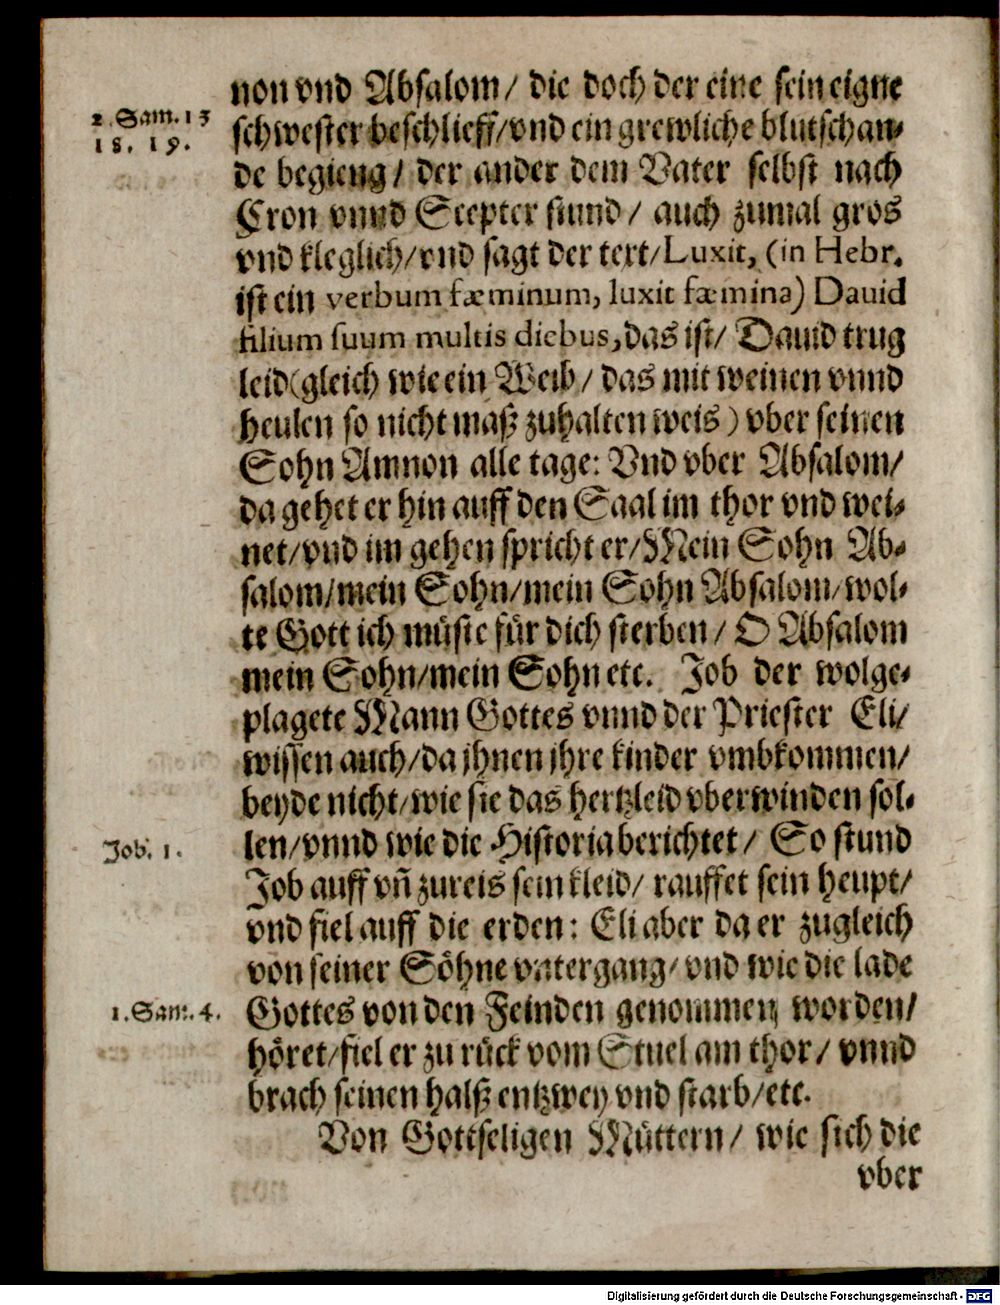 non vnd Absalom/ die doch der eine sein eigne
2. Sam. 13
18. 19.
schwester beschlieff/vnd ein grewliche blutschan-
de begieng/ der ander dem Vater selbst nach
Cron vnnd Scepter stund/ auch zumal gros
vnd kleglich/vnd sagt der text/Luxit, (in Hebr.
ist ein verbum fæminum, luxit fæmina) Dauid
filium suum multis diebus, das ist/ Dauid trug
leid (gleich wie ein Weib/ das mit weinen vnnd
heulen so nicht maß zuhalten weis) vber seinen
Sohn Amnon alle tage: Vnd vber Absalom/
da gehet er hin auff den Saal im thor vnd wei-
net/vnd im gehen spricht er/Mein Sohn Ab-
salom/mein Sohn/mein Sohn Absalom/wol-
te Gott ich müste für dich sterben/ O Absalom
mein Sohn/mein Sohn etc. Job der wolge-
plagete Mann Gottes vnnd der Priester Eli/
wissen auch/da jhnen jhre kinder vmbkommen/
beyde nicht/wie sie das hertzleid vberwinden sol-
Job. 1.
len/vnnd wie die Historia berichtet/ So stund
Job auff vñ zureis sein kleid/ rauffet sein heupt/
vnd fiel auff die erden: Eli aber da er zugleich
von seiner Söhne vntergang/vnd wie die lade
1. Sam. 4.
Gottes von den Feinden genommen worden/
höret/fiel er zu rück vom Stuel am thor/ vnnd
brach seinen halß entzwey vnd starb/etc.
Von Gottseligen Müttern/ wie sich die
vber
Digitalisierung gefördert durch die Deutsche Forschungsgemeinschaft - DFG